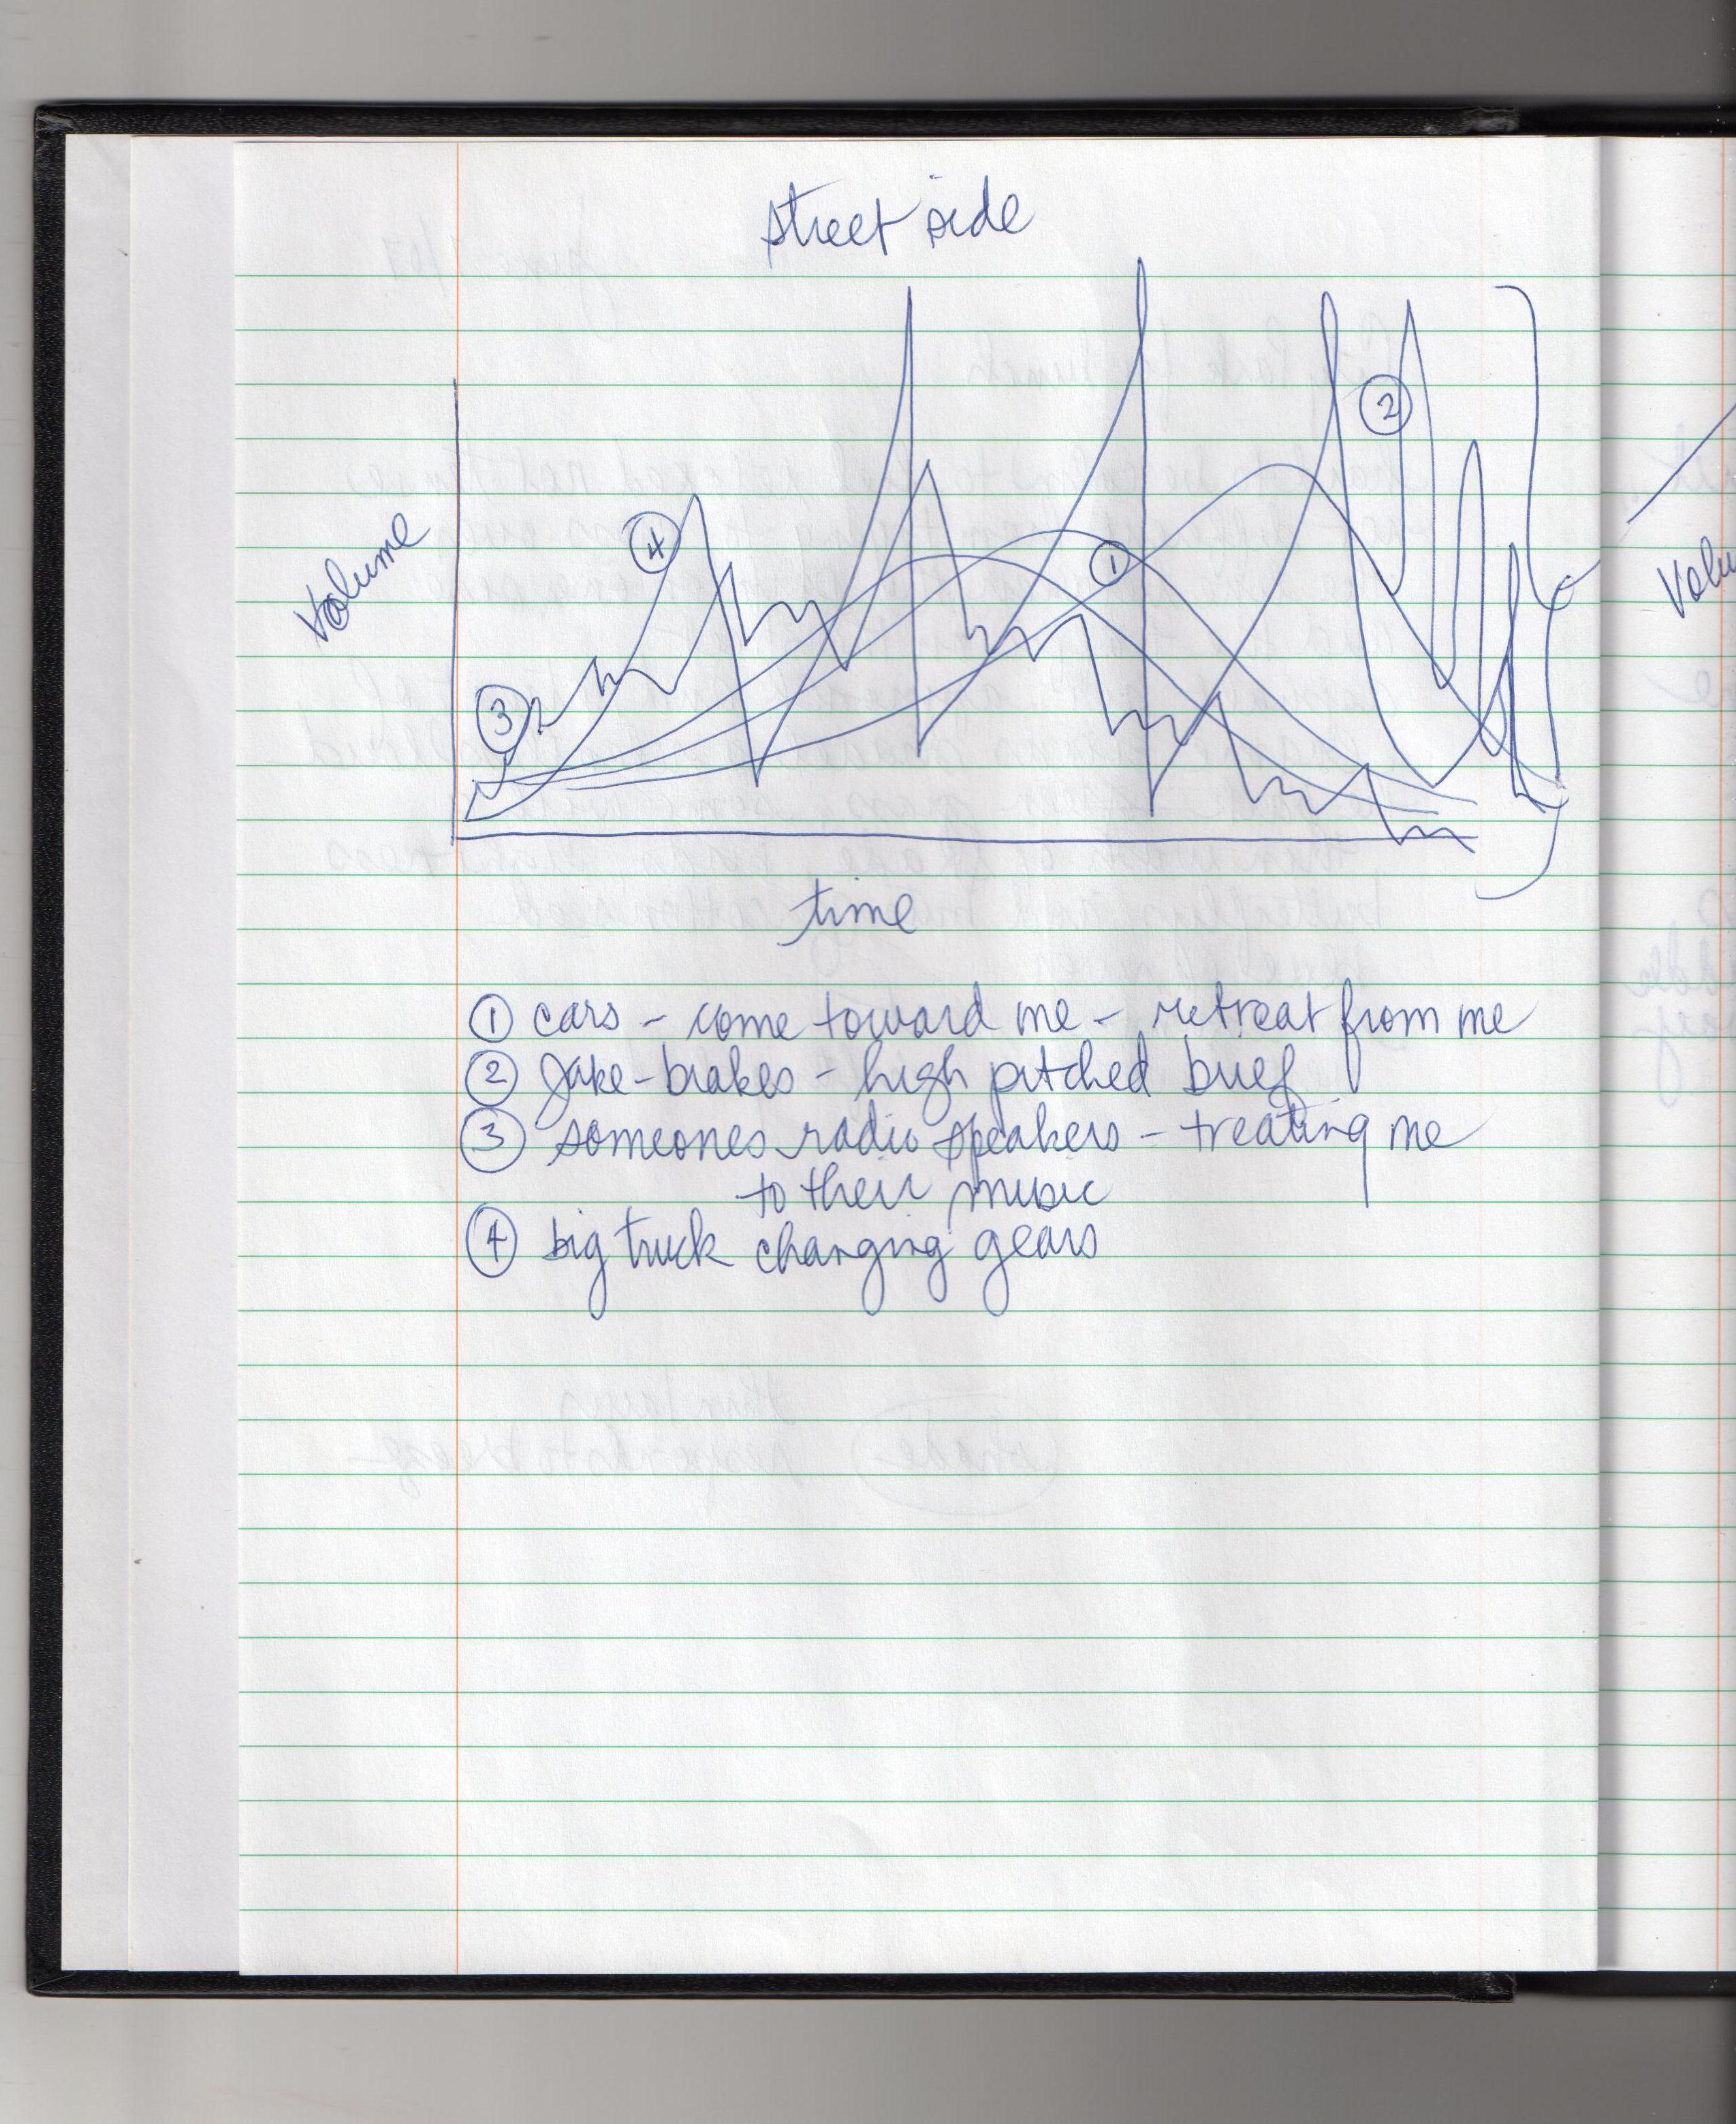 street side
④
②
①
Volume
③
Volu
time
① cars - come toward me - retreat from me
② Jake-brakes - high pitched brief
③ someones radio speakers - treating me
to their music
④ big truck changing gears